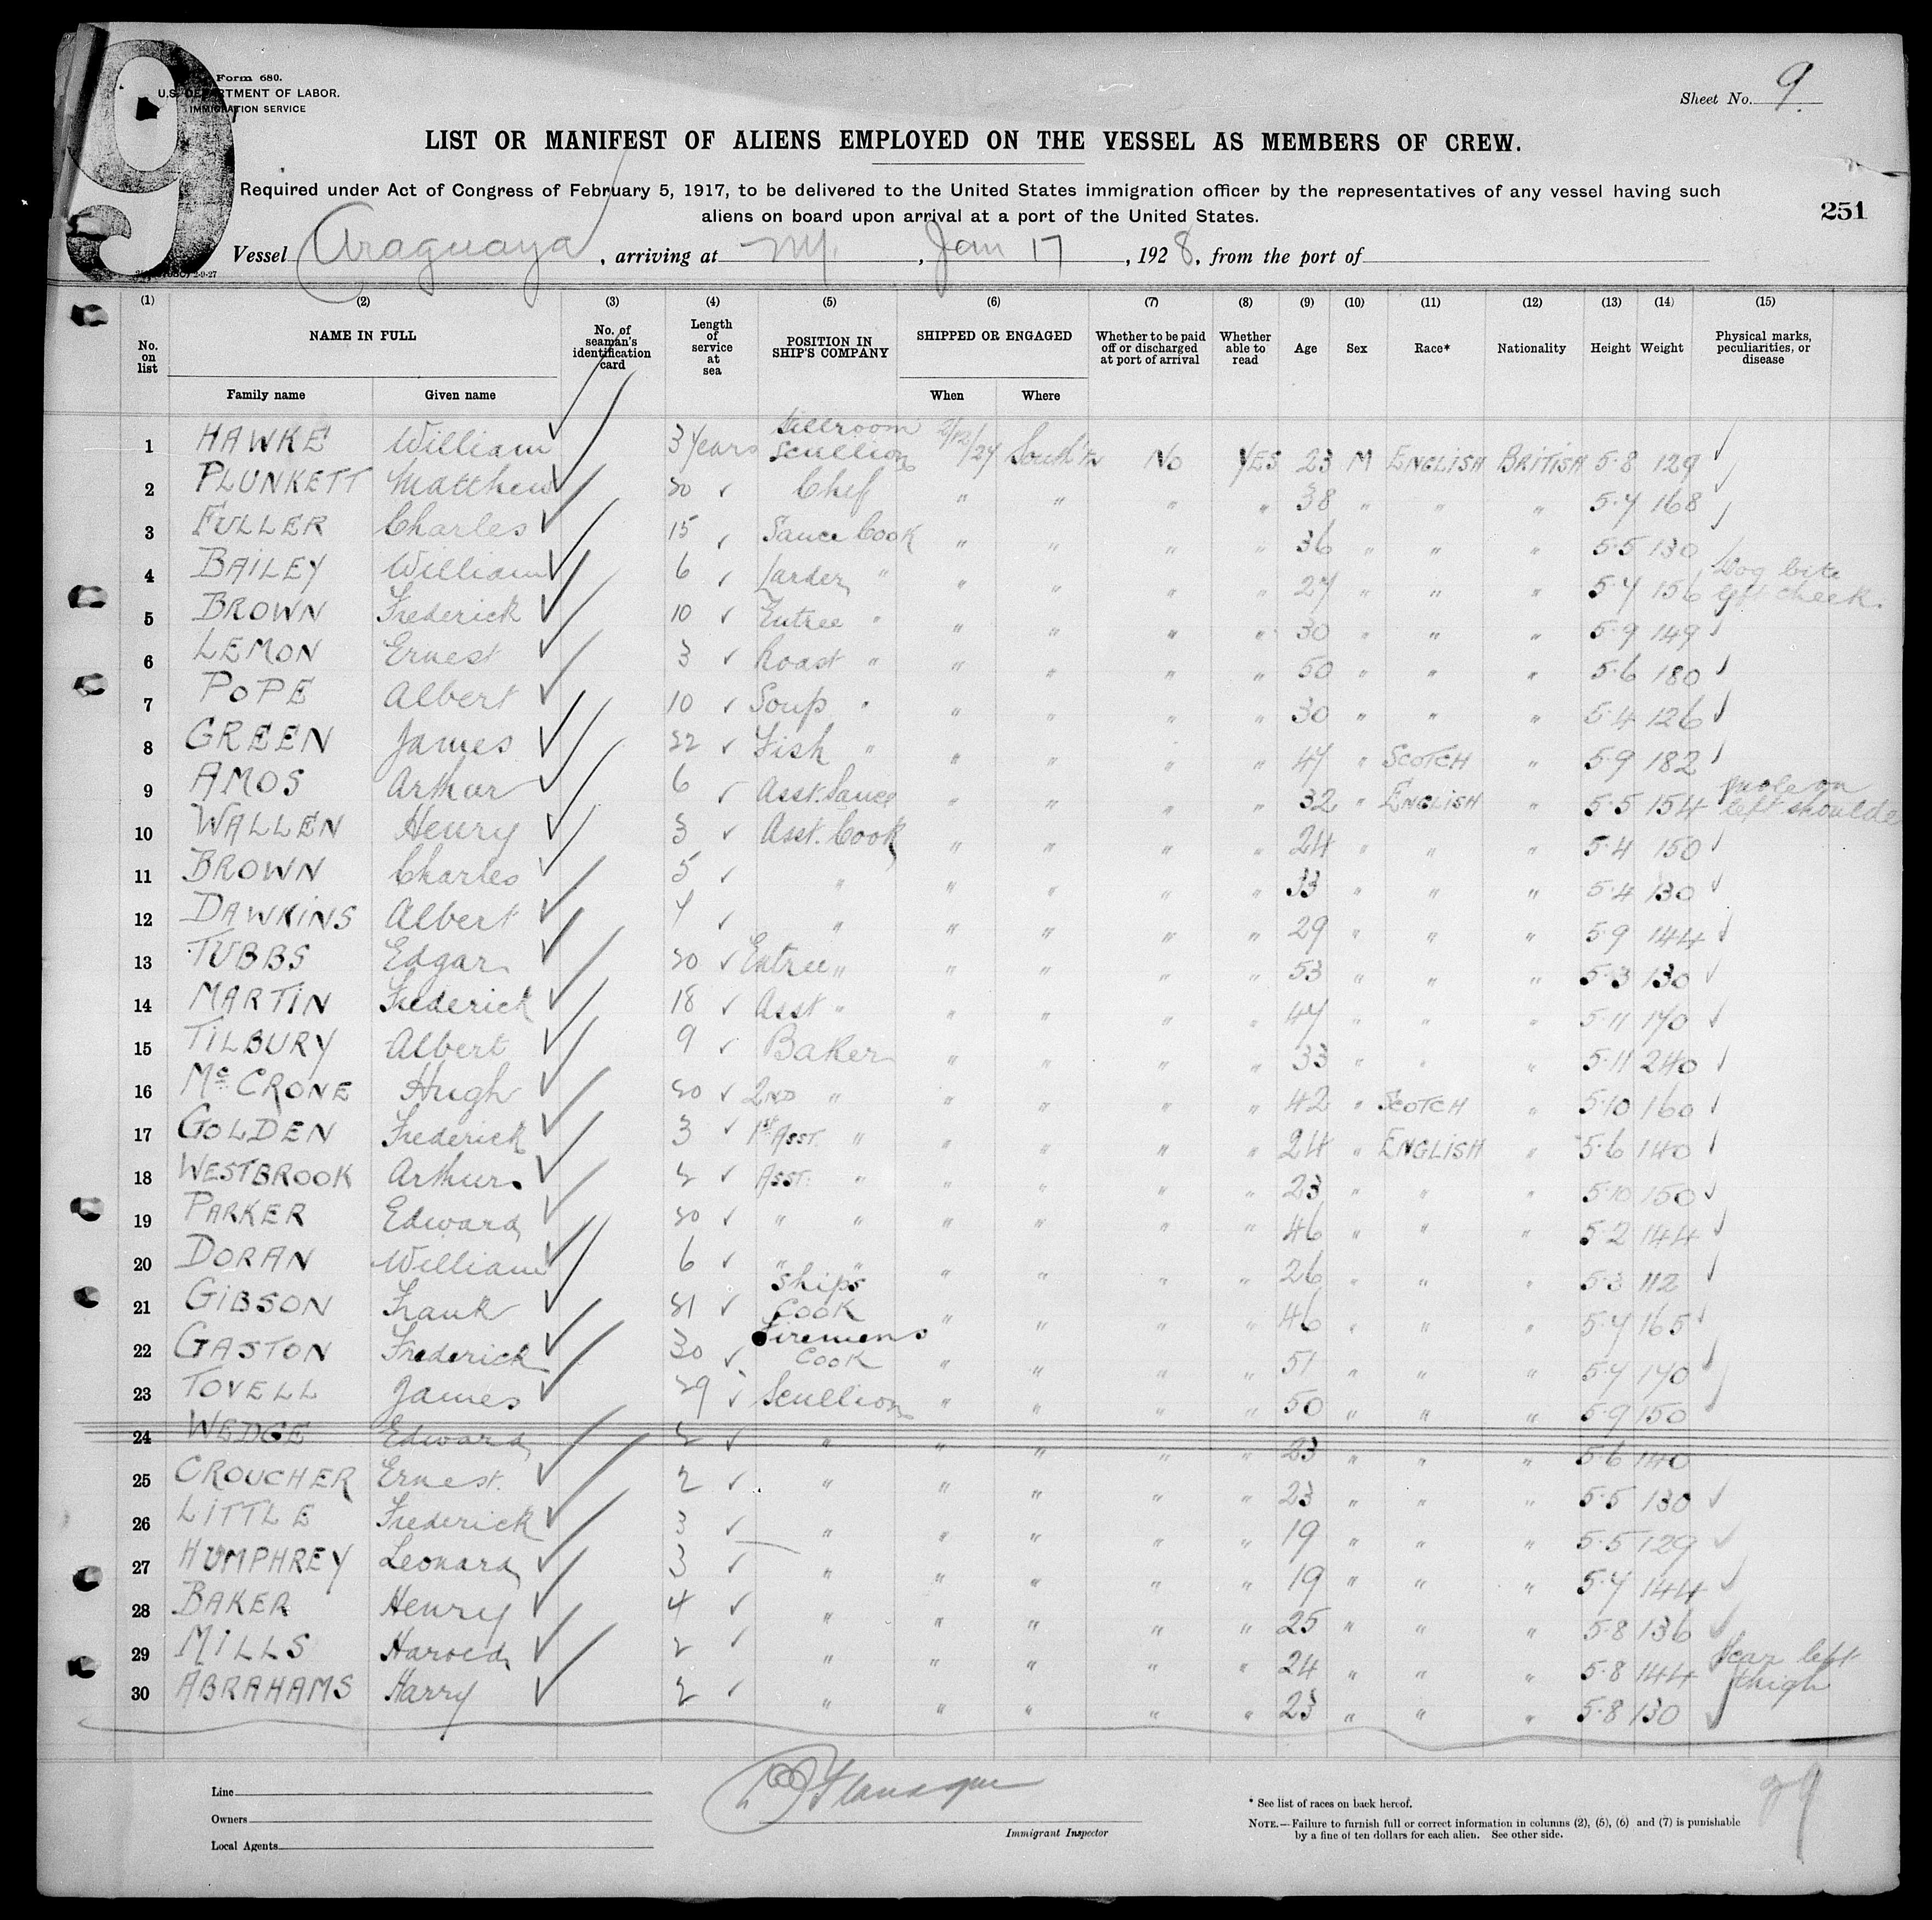 9
Form 680.
U.S. DEPARTMENT OF LABOR.
IMMIGRATION SERVICE
Sheet No. 9.
LIST OR MANIFEST OF ALIENS EMPLOYED ON THE VESSEL AS MEMBERS OF CREW.
Required under Act of Congress of February 5, 1917, to be delivered to the United States immigration officer by the representatives of any vessel having such
aliens on board upon arrival at a port of the United States.
251
Vessel Araguaya, arriving at N.Y., Jan 17, 1928, from the port of
(1) (2) (3) (4) (5) (6) (7) (8) (9) (10) (11) (12) (13) (14) (15)
No. on list NAME IN FULL No. of seaman's identification card Length of service at sea POSITION IN SHIP'S COMPANY SHIPPED OR ENGAGED Whether to be paid off or discharged at port of arrival Whether able to read Age Sex Race* Nationality Height Weight Physical marks, peculiarities, or disease
Family name Given name When Where
1 HAWKE William 3 years Stillroom Scullion South'n No YES 23 M ENGLISH BRITISH 5·8 129
2 PLUNKETT Matthew Chef " " " " 38 " " " 5·7 168
3 FULLER Charles 15 Sauce Cook " " " " 36 " " " 5·5 130
4 BAILEY William 6 Larder " " " " " 27 " " " 5·7 156 Dog bite left cheek.
5 BROWN Frederick 10 Entree " " " " " 30 " " " 5·9 149
6 LEMON Ernest 3 Roast " " " " " 50 " " " 5·6 180
7 POPE Albert 10 Soup " " " " " 30 " " " 5·4 126
8 GREEN James 22 Fish " " " " " 47 " SCOTCH " 5·9 182
9 AMOS Arthur 6 Asst. Sauce " " " " 32 " ENGLISH " 5·5 154 mole on left shoulder
10 WALLEN Henry 3 Asst. Cook " " " " 24 " " " 5·4 150
11 BROWN Charles 5 " " " " " 33 " " " 5·4 130
12 DAWKINS Albert 7 " " " " " 29 " " " 5·9 144
13 TUBBS Edgar Entree " " " " " 53 " " " 5·3 130
14 MARTIN Frederick 18 Asst " " " " " 47 " " " 5·11 170
15 TILBURY Albert 9 Baker " " " " 33 " " " 5·11 240
16 McCRONE Hugh 2ND " " " " " 42 " SCOTCH " 5·10 160
17 GOLDEN Frederick 3 1st Asst. " " " " " 24 " ENGLISH " 5·6 140
18 WESTBROOK Arthur 2 Asst. " " " " " 23 " " " 5·10 150
19 PARKER Edward " " " " " " 46 " " " 5·2 144
20 DORAN William 6 " " " " " " 26 " " " 5·3 112
21 GIBSON Frank Ships Cook " " " " 46 " " " 5·7 165
22 GASTON Frederick 30 Firemens Cook " " " " 51 " " " 5·7 170
23 TOVELL James Scullion " " " " 50 " " " 5·9 150
24 WEDGE Edward 2 " " " " " 23 " " " 5·6 140
25 CROUCHER Ernest. 2 " " " " " 23 " " " 5·5 130
26 LITTLE Frederick 3 " " " " " 19 " " " 5·5 129
27 HUMPHREY Leonard 3 " " " " " 19 " " " 5·7 144
28 BAKER Henry 4 " " " " " 25 " " " 5·8 136
29 MILLS Harold 2 " " " " " 24 " " " 5·8 144 Scar left thigh
30 ABRAHAMS Harry 2 " " " " " 23 " " " 5·8 130
Line
Owners
Local Agents
Flanagan
Immigrant Inspector
* See list of races on back hereof.
NOTE.—Failure to furnish full or correct information in columns (2), (5), (6) and (7) is punishable
by a fine of ten dollars for each alien. See other side.
29